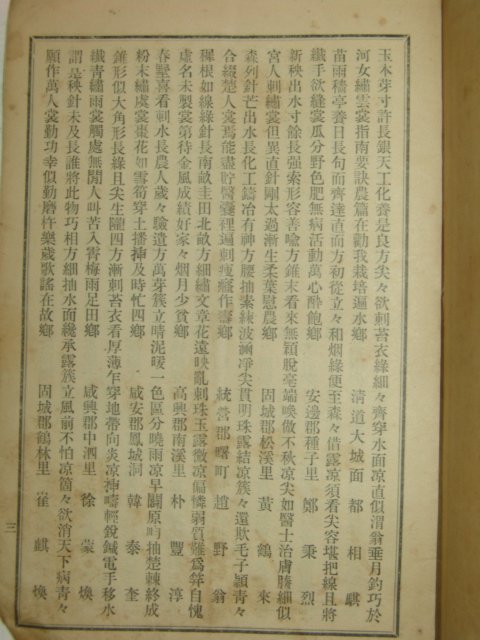 玉本芽寸許長銀天工化養是良方尖々欲刺苔衣綠細々齊穿水面凉直似渭翁垂月釣巧於
河女繡雲裳指南要訣農篇在勸我栽培遍水鄉 清道大城面 都相騏
苗雨穉亭養日長句而齊達直面方初從立々和烟綠便至森々借露凉須看尖容堪把線且將
纖手欲縫裳瓜分野色肥無病活動萬心醉飽鄉 安邊郡種子里 鄭秉烈
新秧出水寸餘長强索形容善喩方錐末看來無穎脫毫端喚做不秋凉尖如醫士治膚勝細似
宮人刺繡裳但異直針剛太過漸生柔葉慰農鄉 固城郡松溪里 黃鶴來
森列針芒出水長化工鑄冶有神方腰抽素練波濔淨尖貫明珠露結凉簇々還欺毛子頴靑々
合綴楚人裳焉能盡貯醫囊裡遍刺瘦癃作壽鄉 統營郡曙町 趙野翁
穉根如線綠針長南畝圭田北畝方細繡文章花遠映亂刺珠玉露微凉偏憐弱質難爲筓自愧
虛名未製裳第待金風成績好家々烟月少貧鄉 高興郡南溪里 朴豐淳
春墅喜看刺水長農人歲々驗遺方萬芽簇立晴泥暖一色區分曉雨凉早闢原時抽楚棘終成
粉末繡虞裳棗花如雪筍穿土播揷及時忙四鄉 咸安郡鳳城洞 韓泰奎
錐形似大角形長綠且尖生隨四方漸刺苔衣看厚薄乍穿地帶向炎凉神疇輕銳鍼電手移水
纖靑繡雨裳觸處無閒人叫苦入霄梅雨足田鄉 咸興郡中泗里 徐蒙煥
謂是秧針未及長誰將此物巧相方細抽水面纔承露簇立風前不怕凉箇々欲消天下病靑々
願作萬人裳勤功幸似勤磨杵樂歲歌謠在故鄉 固城郡鶴林里 崔麒煥
三